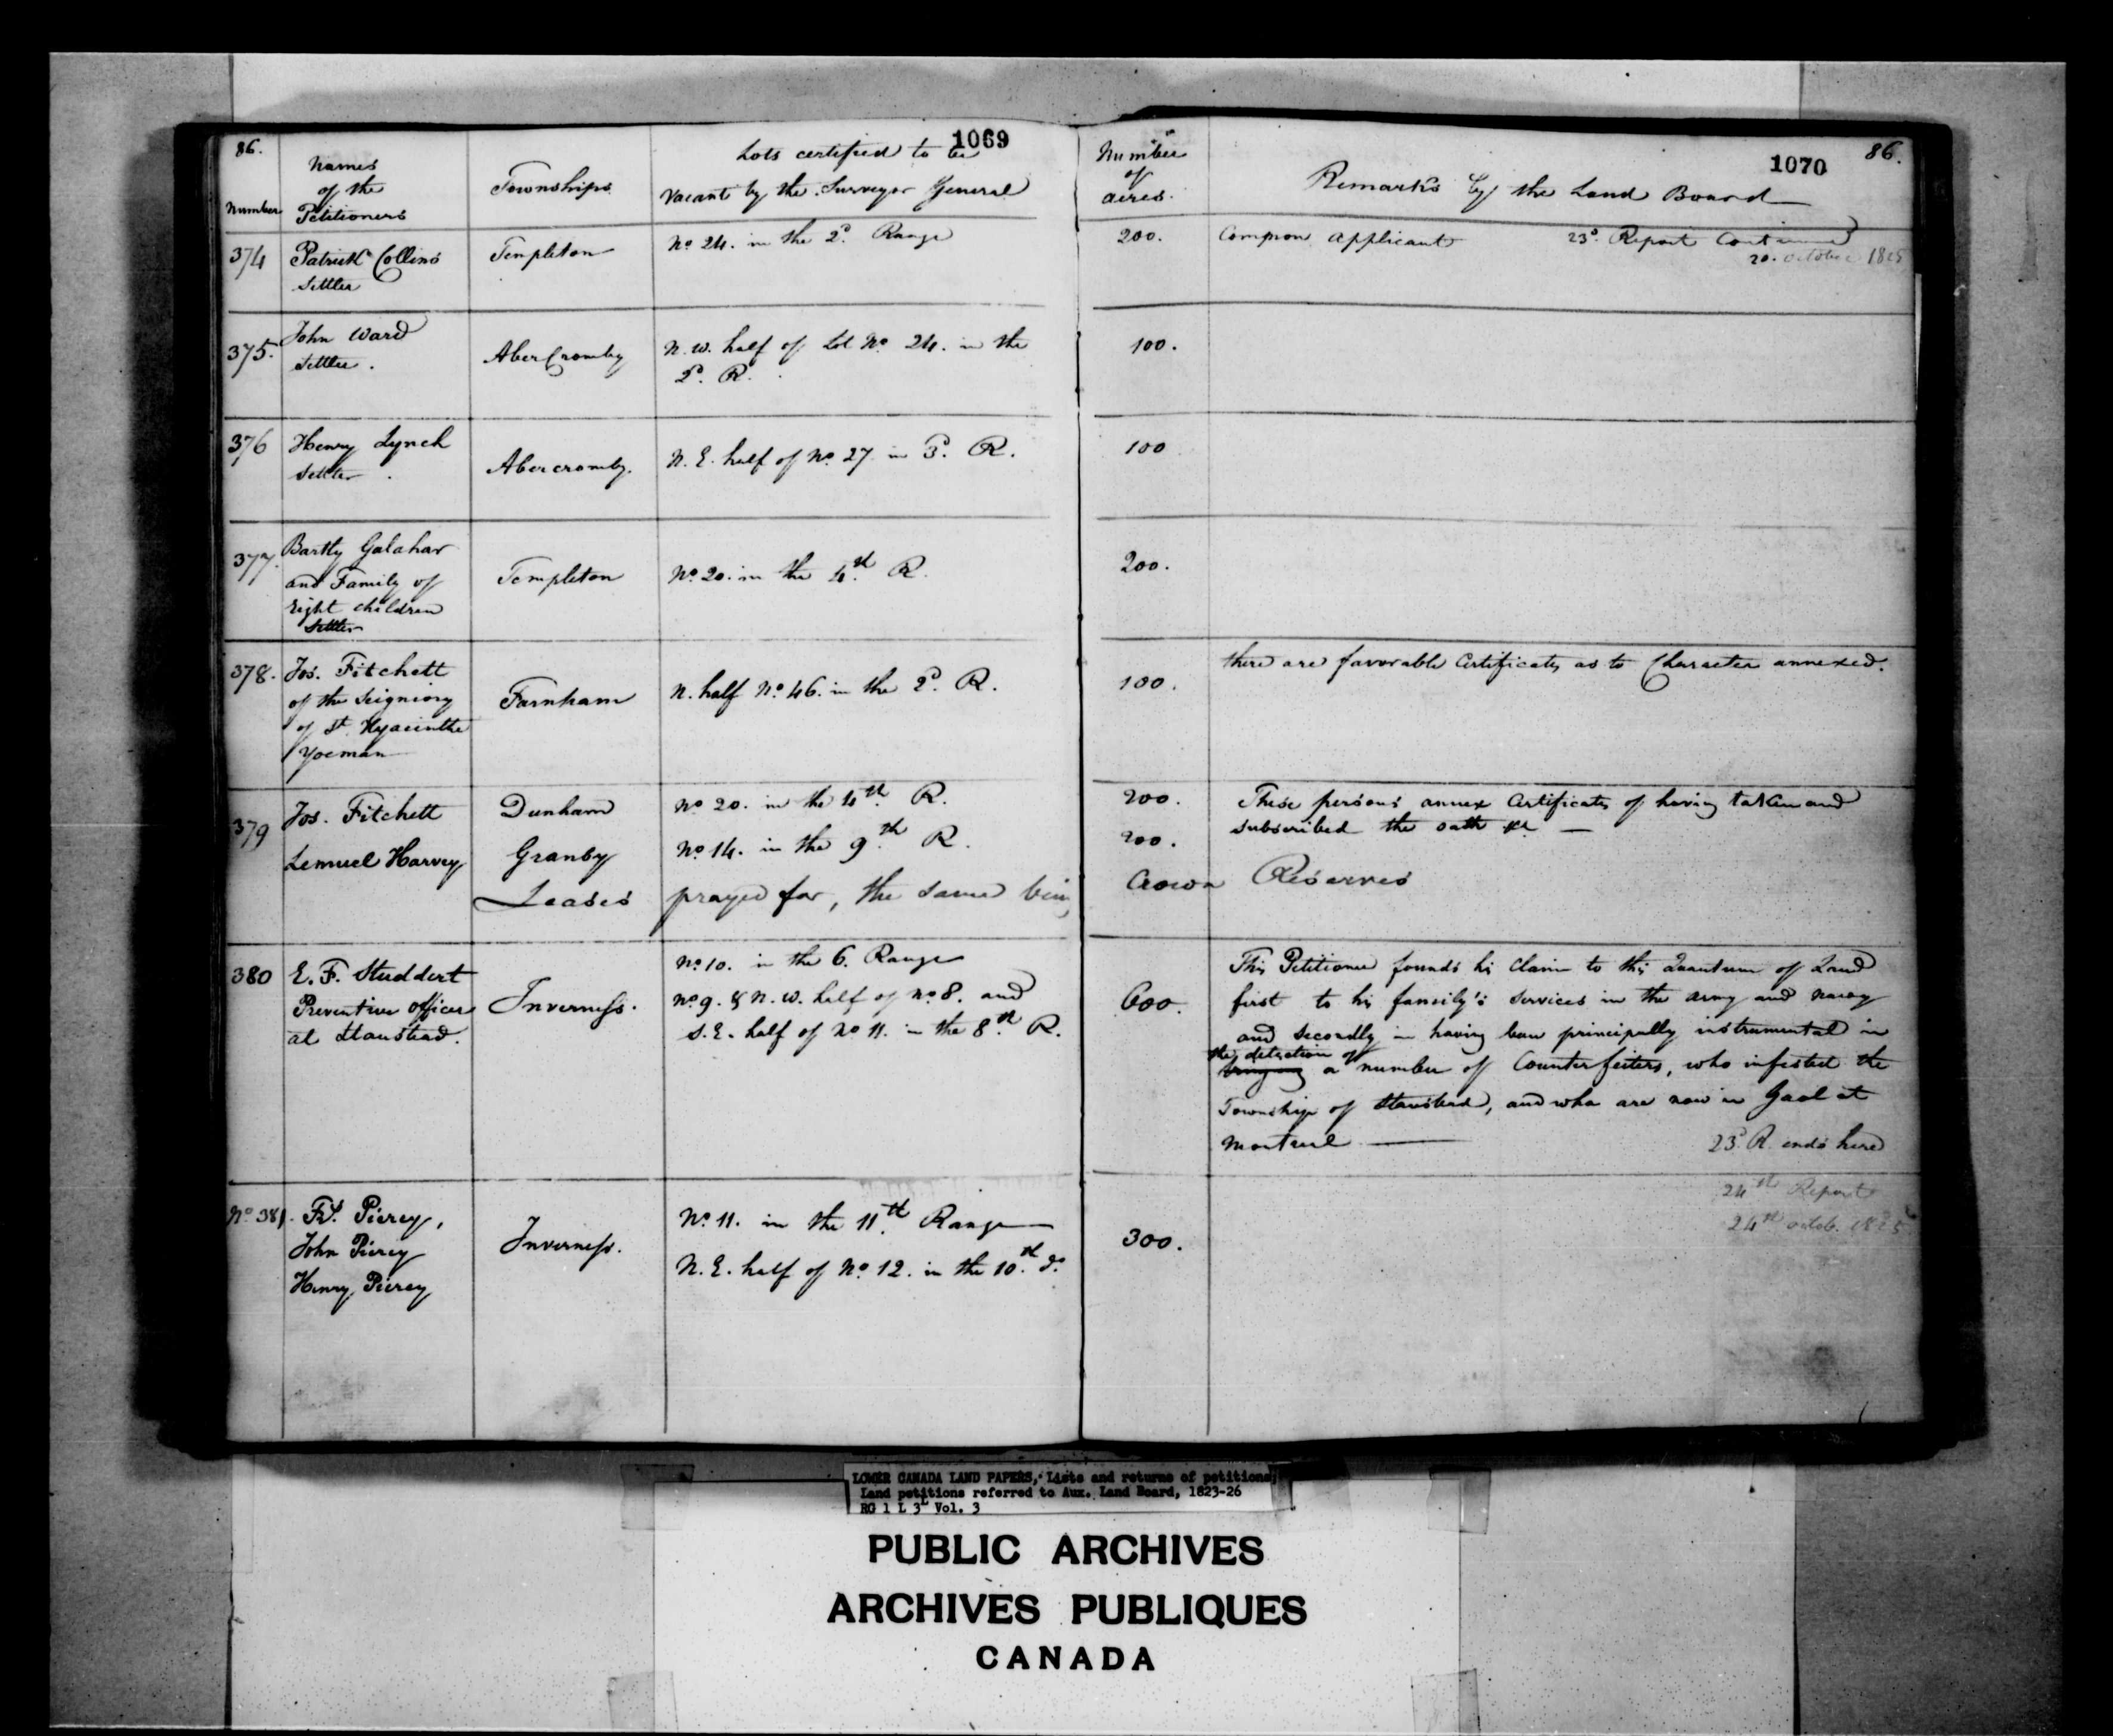 86.
1069
Number
Names
of the
Petitioners
Townships
Lots certified to be
vacant by the Surveyor General
Number
of
acres.
1070
86.
Remarks by the Land Board
374
Patrick Collins
Settler
Templeton
No 24. in the 2d. Range
200.
Common Applicant
23d. Report Continued
20. October 1825
375.
John Ward
Settler.
AberCromby
N. W. half of Lot No. 24. in the
2d. R.
100.
376
Henry Lynch
Settler.
Abercromby.
N. E. half of No 27. in 3d. R.
100
377.
Bartly Galahar
and Family of
Eight children
Settler
Templeton
No. 20. in the 4th. R.
200.
378.
Jos. Fitchett
of the Seigniory
of St. Hyacinthe
Yoeman
Farnham
N. half No. 46. in the 2d. R.
100.
there are favorable Certificates as to Character annexed.
379
Jos. Fitchett
Dunham
No 20. in the 4th. R.
200.
These persons annex Certificates of having taken and
subscribed the oath &c
Lemuel Harvey
Granby
No. 14. in the 9th. R.
200.
Leases prayed for, the same being Crown Reserves
380
E. F. Studdert
Preventive officer
at Stanstead.
Inverness.
No. 10. in the 6. Range
No 9. & N. W. half of No 8. and
S. E. half of No 11. in the 8th. R.
600.
This Petitioner founds his Claim to this Quantum of Land
first to his family's services in the army and navy
and secondly in having been principally instrumental in
the detection of
bringing a number of Counterfeiters, who infested the
Township of Stanstead, and who are now in Gaol at
Montreal
23d. R. ends here
24th Report
24th octob. 1825
No. 381.
Fs. Piercy,
John Piercy
Henry Piercy
Inverness.
No. 11. in the 11th. Range
N. E. half of No. 12. in the 10th. do.
300.
LOWER CANADA LAND PAPERS, Lists and returns of petitions,
Land petitions referred to Aux. Land Board, 1823-26
RG 1 L 3L Vol. 3
PUBLIC ARCHIVES
ARCHIVES PUBLIQUES
CANADA